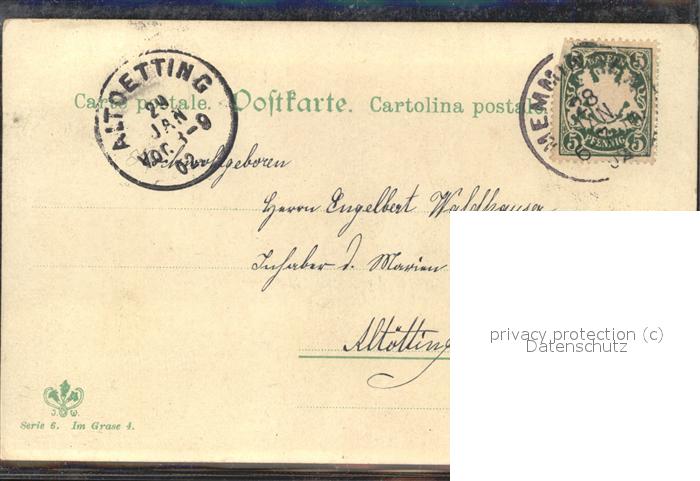 Carte postale. Postkarte. Cartolina postale.
ALTOETTING
29
JAN
Vor. 8-9
02
MEMMIN
28
JAN
BAYERN
5 5
5 5
PFENNIG
Hochwohlgeboren
Herrn Engelbert Waldhauser
Inhaber d. Marien
Altötting
J. W.
Serie 6. Im Grase 4.
privacy protection (c)
Datenschutz